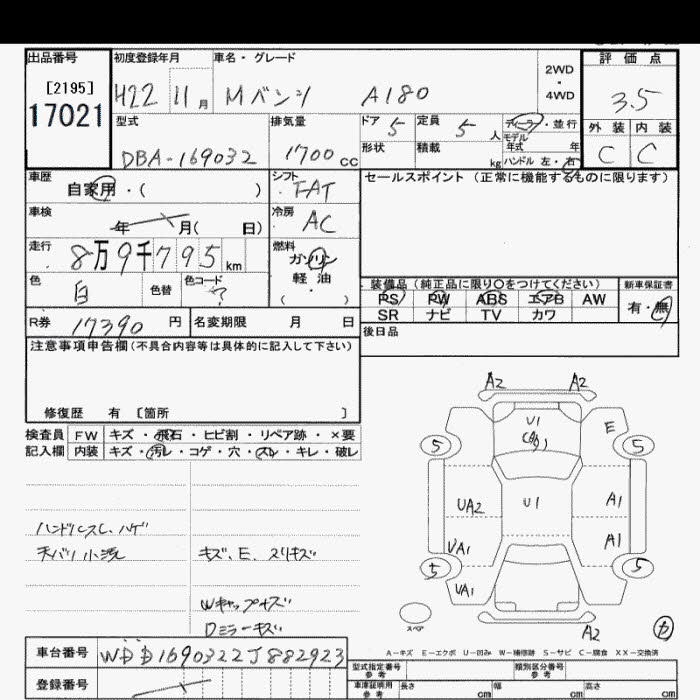 出品番号
[2195]
17021
初度登録年月
H22 11月
車名・グレード
Mベンツ A180
2WD
・
4WD
評価点
3.5
外装 内装
C C
型式
DBA-169032
排気量
1700cc
ドア 5
定員 5人
ディーラー・並行
モデル
年式 年
形状
積載 kg
ハンドル 左・右
車歴
自家用・( )
シフト
FAT
セールスポイント(正常に機能するものに限ります)
車検
年 月( 日)
冷房
AC
走行
8万9千795km
燃料
ガソリン
軽油
( )
色
白
色替
色コード
?
装備品(純正品に限り○をつけてください)
新車保証書
PS PW ABS エアB AW
SR ナビ TV カワ
有・無
R券 17390円
名変期限 月 日
後日品
注意事項申告欄(不具合内容等は具体的に記入して下さい)
修復歴 有 [箇所 ]
検査員
記入欄
FW キズ・飛石・ヒビ割・リペア跡・×要
内装 キズ・汚レ・コゲ・穴・スレ・キレ・破レ
ハンドルスレ、ハゲ
天バリ小汚
キズ、E、スリキズ
Wキャップキズ
Dミラーキズ
A2 A2
U1
E
5 5
UA2 U1 A1
UA1 A1
5 5
UA1
スペア
A2
A-キズ E-エクボ U-凹み W-補修跡 S-サビ C-腐食 XX-交換済
車台番号 WDD1690322J882923
登録番号
型式指定番号
参考
類別区分番号
参考
車庫証明用
参考
長さ cm
幅 cm
高さ cm